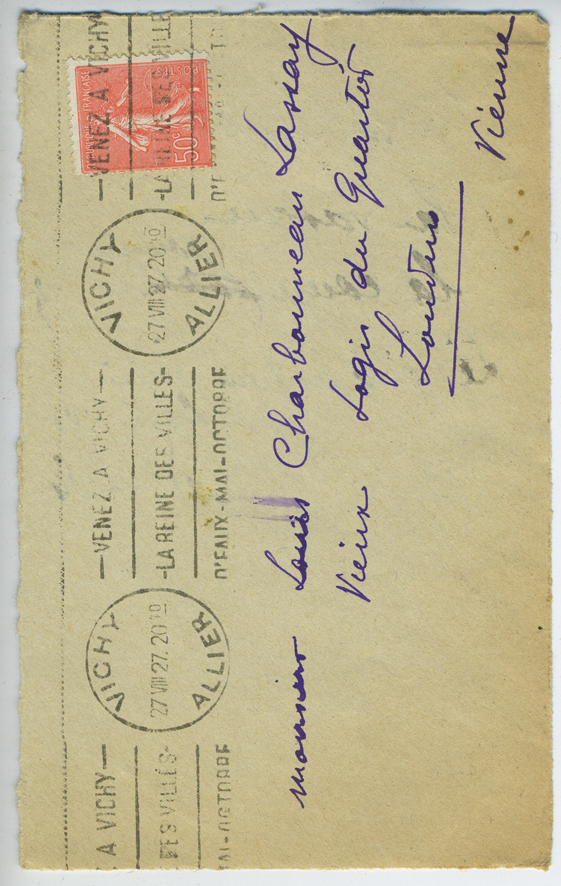 A VICHY—
DES VILLES-
MAI-OCTOBRE
VICHY
27 VIII 27. 20 10
ALLIER
—VENEZ A VICHY—
-LA REINE DES VILLES-
D'EAUX-MAI-OCTOBRE
VICHY
27 VIII 27. 20 10
ALLIER
—VENEZ A VICHY
-LA REINE DES VILLE
FRANÇAISE
50c
Monsieur Louis Charbonneau Lassay
Vieux Logis du
Loudun
Vienne